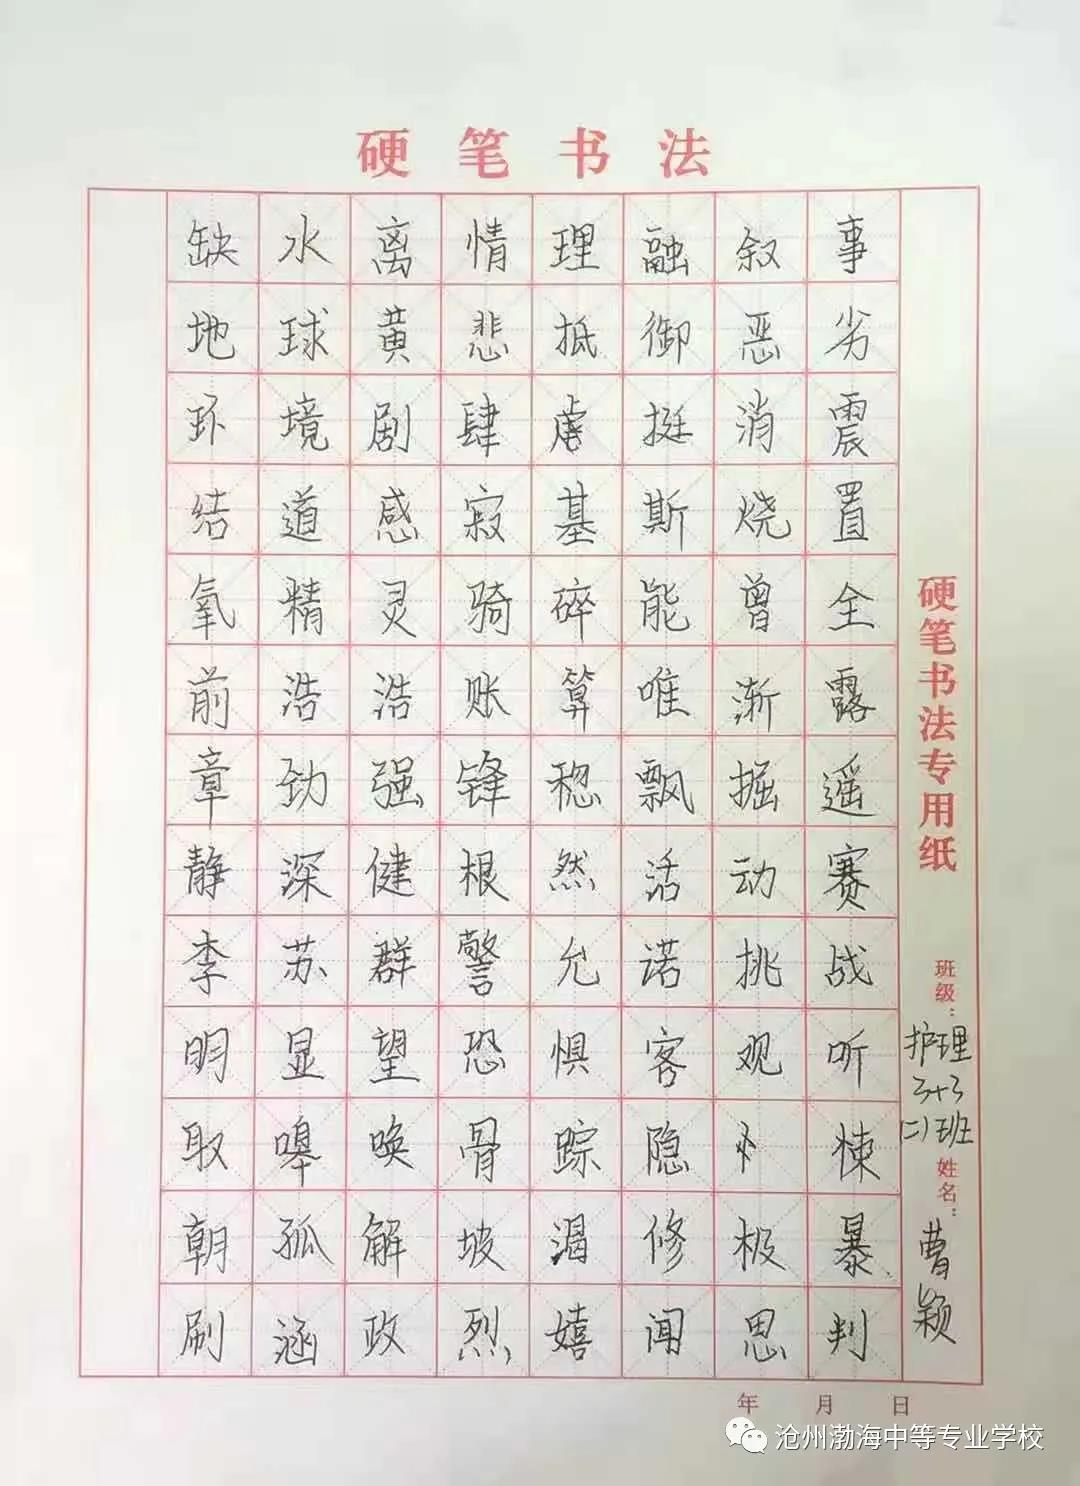 硬笔书法
缺水离情理融叙事
地球黄悲抵御恶劣
环境剧肆虐挺消震
结道感寂基斯烧置
氧精灵骑碎能曾全
前浩浩账算唯渐露
章劲强锋稳飘掘遥
静深健根然活动赛
李苏群警允诺挑战
明显望恐惧客观听
取嗥唤骨踪隐忄悚
朝孤解坡渴修极暴
刷涵政烈嬉闻思判
硬笔书法专用纸
班级：护理3+3(二)班
姓名：曹颖
年 月 日
沧州渤海中等专业学校